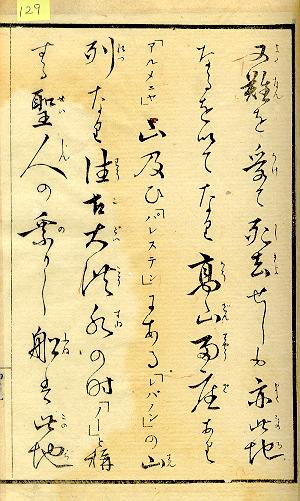 129
又難を受て死去せしも亦此地
なるを以てなり高山両座あり
「アルメニヤ」山及ひ「パレステン」にある「レバノン」の山
列なり往古大洪水の時「ノー」と称
する聖人の乗りし船は此地